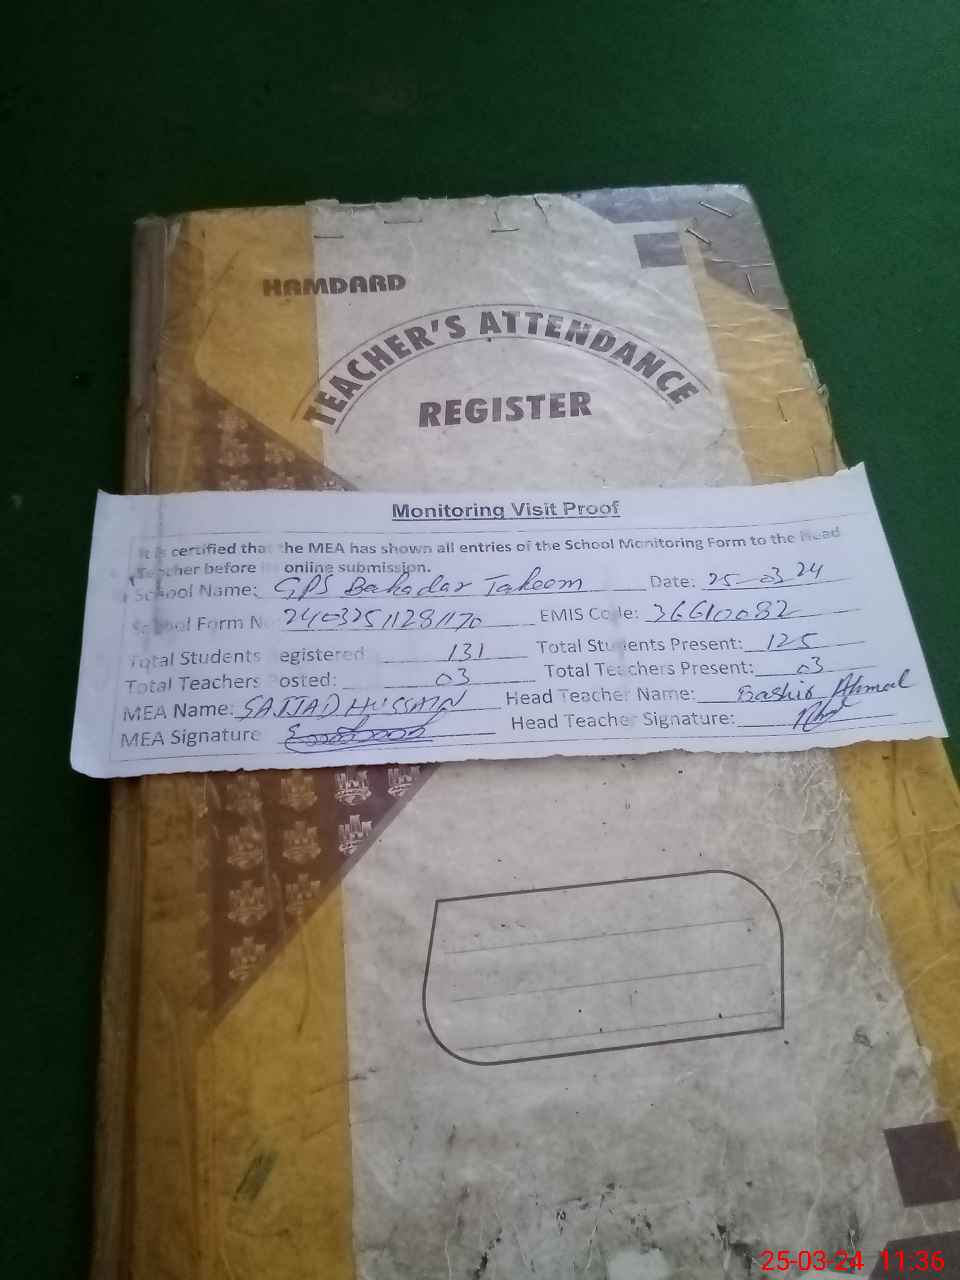 HAMDARD
TEACHER'S ATTENDANCE
REGISTER
Monitoring Visit Proof
It is certified that the MEA has shown all entries of the School Monitoring Form to the Head
Teacher before online submission.
School Name: GPS Bahadar Takeem Date: 25-03-24
School Form N 24032511281170 EMIS Code: 36610082
Total Students Registered 131 Total Students Present: 125
Total Teachers Posted: 03 Total Teachers Present: 03
MEA Name: SAJJAD HUSSAIN Head Teacher Name: Bashir Ahmad
MEA Signature Head Teacher Signature:
25-03-24 11:36